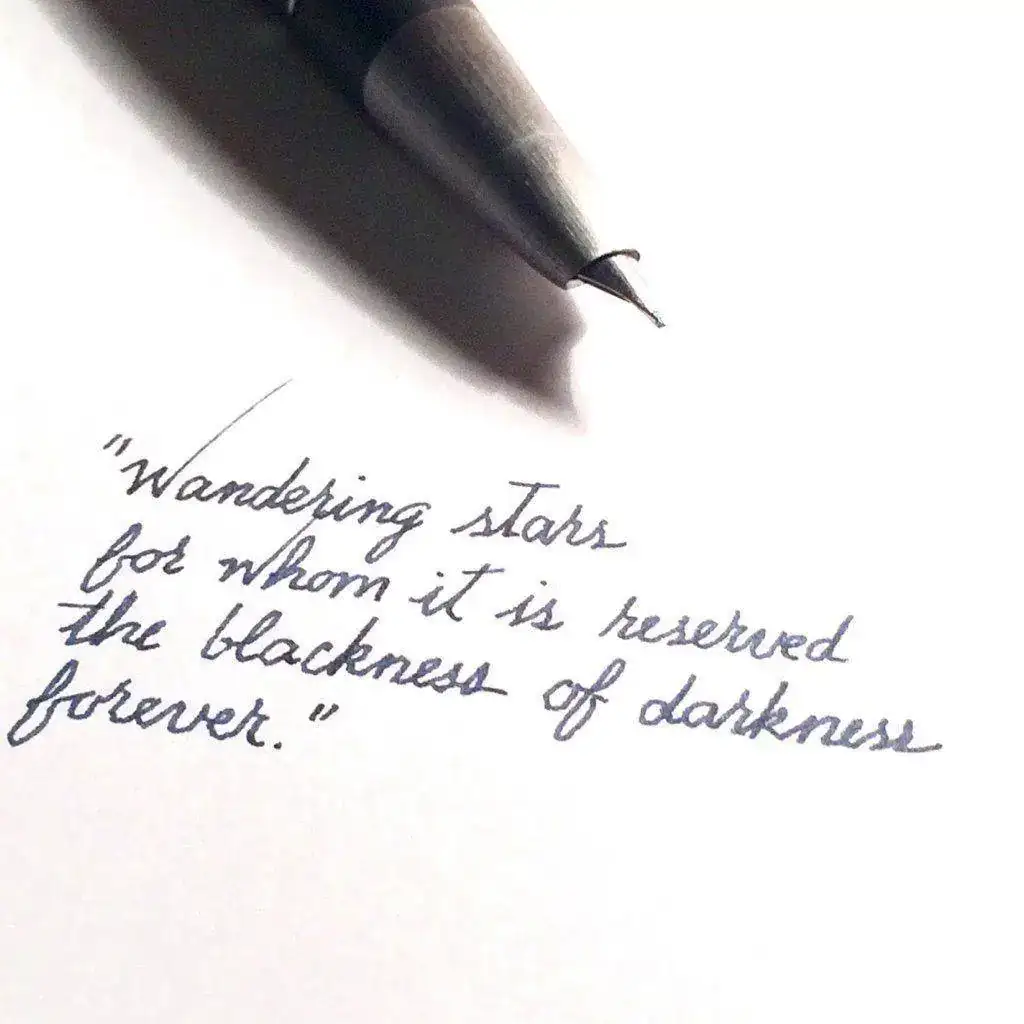 "Wandering stars
for whom it is reserved
the blackness of darkness
forever."